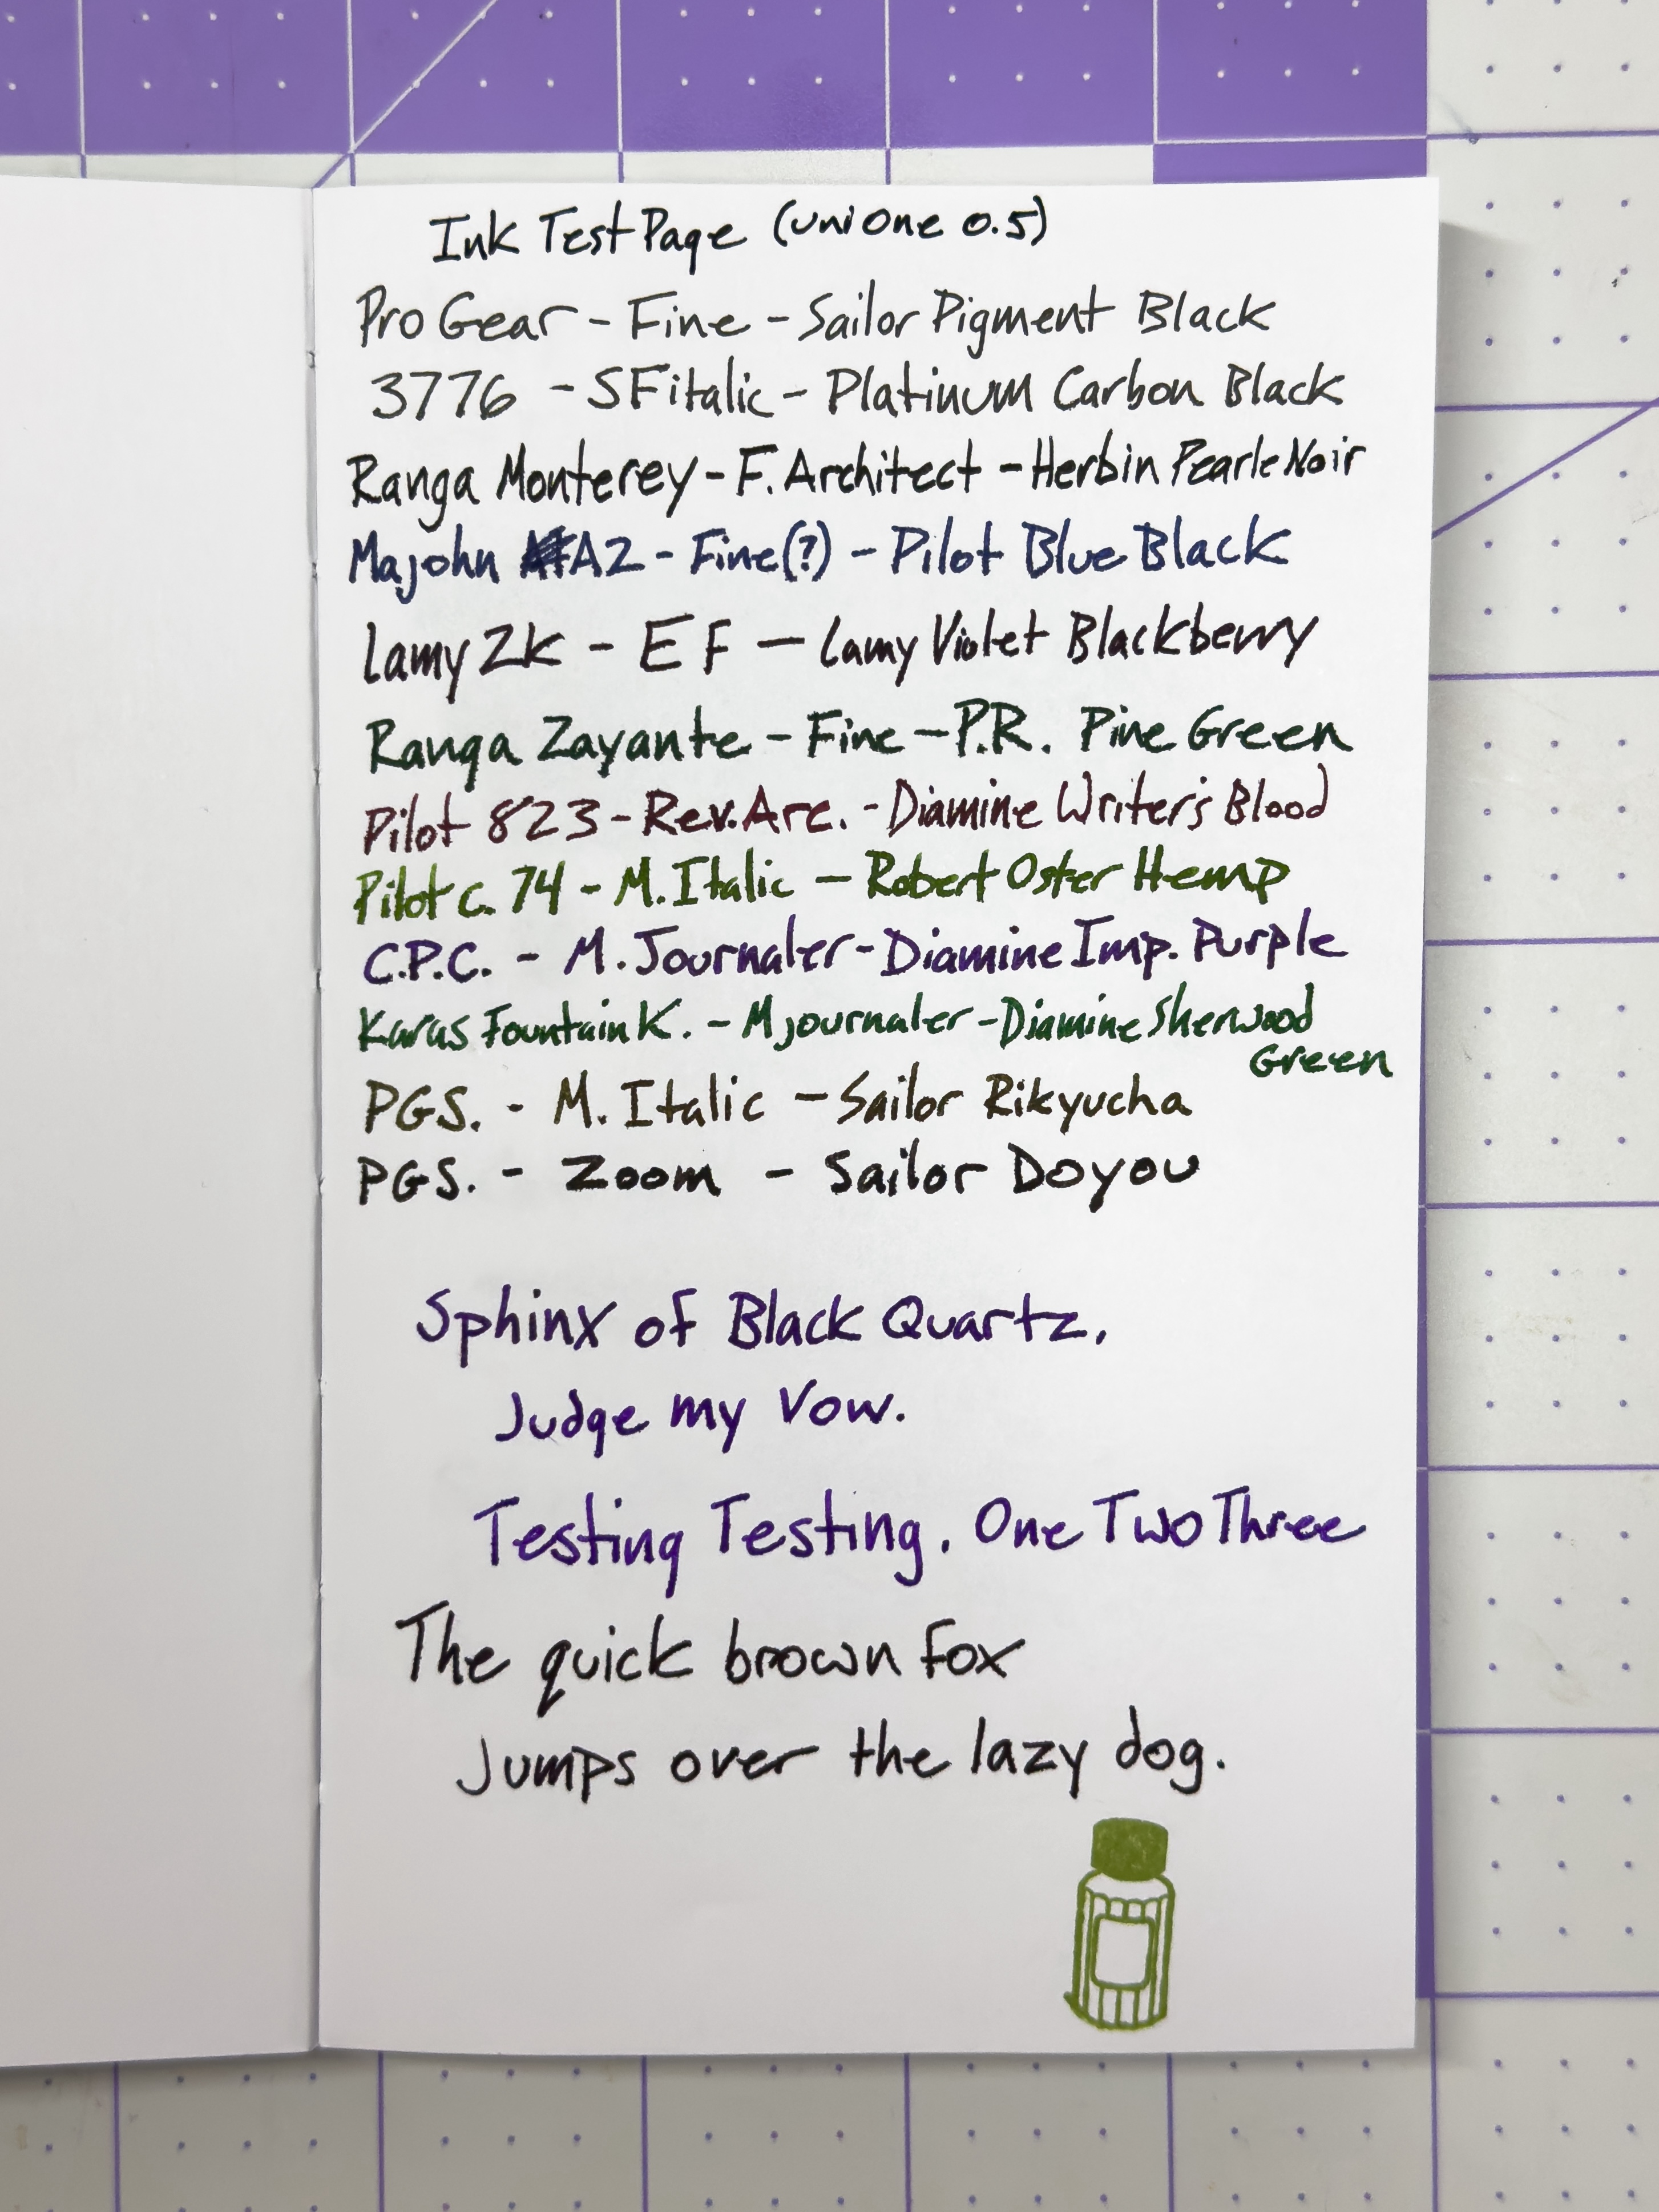 Ink Test Page (uni One 0.5)
Pro Gear - Fine - Sailor Pigment Black
3776 - SF italic - Platinum Carbon Black
Ranga Monterey - F. Architect - Herbin Pearle Noir
Majohn A2 - Fine (?) - Pilot Blue Black
Lamy 2K - EF - Lamy Violet Blackberry
Ranga Zayante - Fine - P.R. Pine Green
Pilot 823 - Rev. Arc. - Diamine Writer's Blood
Pilot c. 74 - M. Italic - Robert Oster Hemp
C.P.C. - M. Journaler - Diamine Imp. Purple
Karas Fountain K. - M journaler - Diamine Sherwood
Green
PGS. - M. Italic - Sailor Rikyucha
PGS. - Zoom - Sailor Doyou
Sphinx of Black Quartz,
Judge my Vow.
Testing Testing. One Two Three
The quick brown fox
Jumps over the lazy dog.